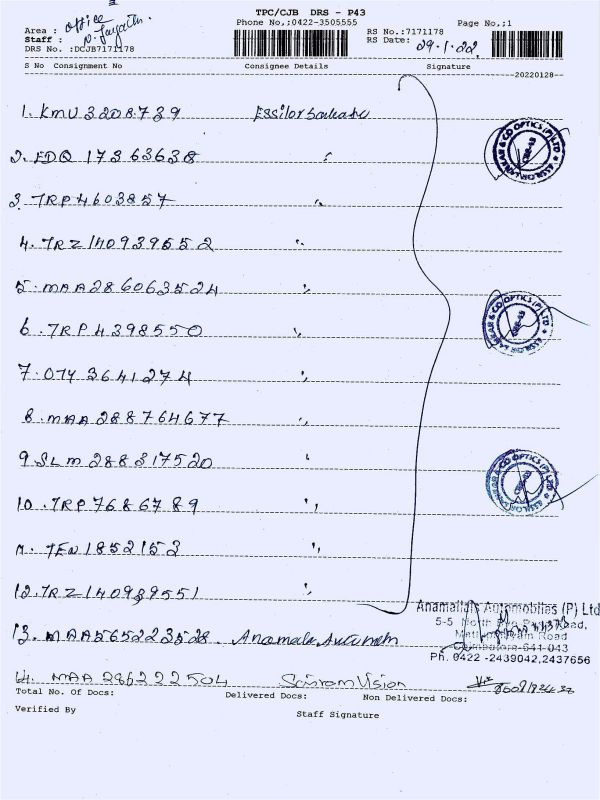 TPC/CJB DRS - P43
Phone No,:0422-3505555
Page No,:1
Area : office
Staff :
RS No.:7171178
RS Date: 29.1.22.
DRS No. :DCJB7171178
S No Consignment No Consignee Details Signature
20220128
1. KMU 3208739
2. EDQ 17363638 "
3. TRP 4603857 "
4. TRZ 140939552 "
5. MAA 286063524 "
6. TRP 4398550 "
7. 3641274 "
8. MAA 288764677 "
9. SLM 288317520 "
10. TRP 7686789 "
11. TEN 1852153 "
12. TRZ 140939551 "
Anamallais Automobiles (P) Ltd
5-5
Road,
Road
Coimbatore-641 043
13. MAA 565223528.
Ph. 0422 -2439042,2437656
14. MAA 286222504 Vision
Total No. Of Docs: Delivered Docs: Non Delivered Docs:
Verified By Staff Signature